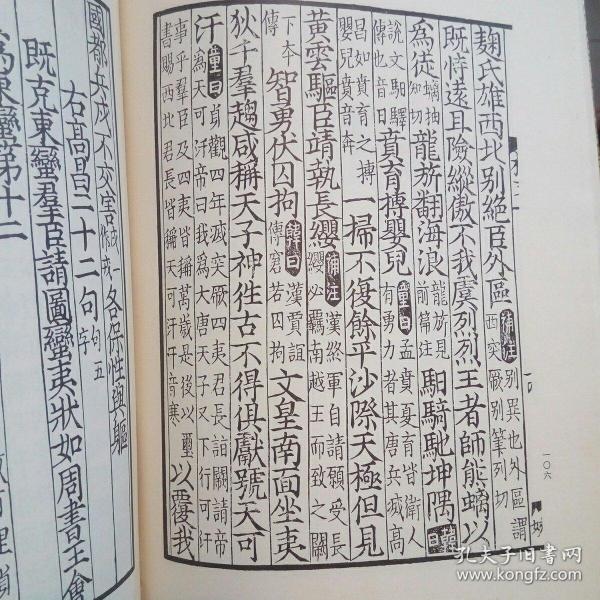 麴氏雄西北别絶臣外區補注别異也外區謂西突厥别筆列切
既恃遠且險縱傲不我虞烈烈王者師熊螭以
為徒螭抽知切龍旂翻海浪龍旂見前篇注馹騎馳坤隅韓曰
說文馹驛傳也音日賁育搏嬰兒童曰孟賁夏育皆衛人有勇力者其唐兵滅高
昌如賁育之搏嬰兒賁音奔一掃不復餘平沙際天極但見
黄雲驅臣靖執長纓補注漢終軍自請願受長纓必羈南越王而致之闕
下本傳智勇伏囚拘韓曰漢賈誼傳窘若囚拘文皇南面坐夷
狄千羣趨咸稱天子神往古不得俱獻號天可
汗童曰貞觀四年滅突厥四夷君長詣闕請帝為天可汗帝曰我為大唐天子又下行可汗
事乎羣臣及四夷皆稱萬歲是後以璽書賜西北君長皆稱天可汗汗音寒以覆我
一〇六
國都兵戎不交害戎一作戒各保性與軀
右高昌二十二句句五字
既克東蠻羣臣請圖蠻夷狀如周書王會
為東蠻第十二
孔夫子旧书网
www.kongfz.com